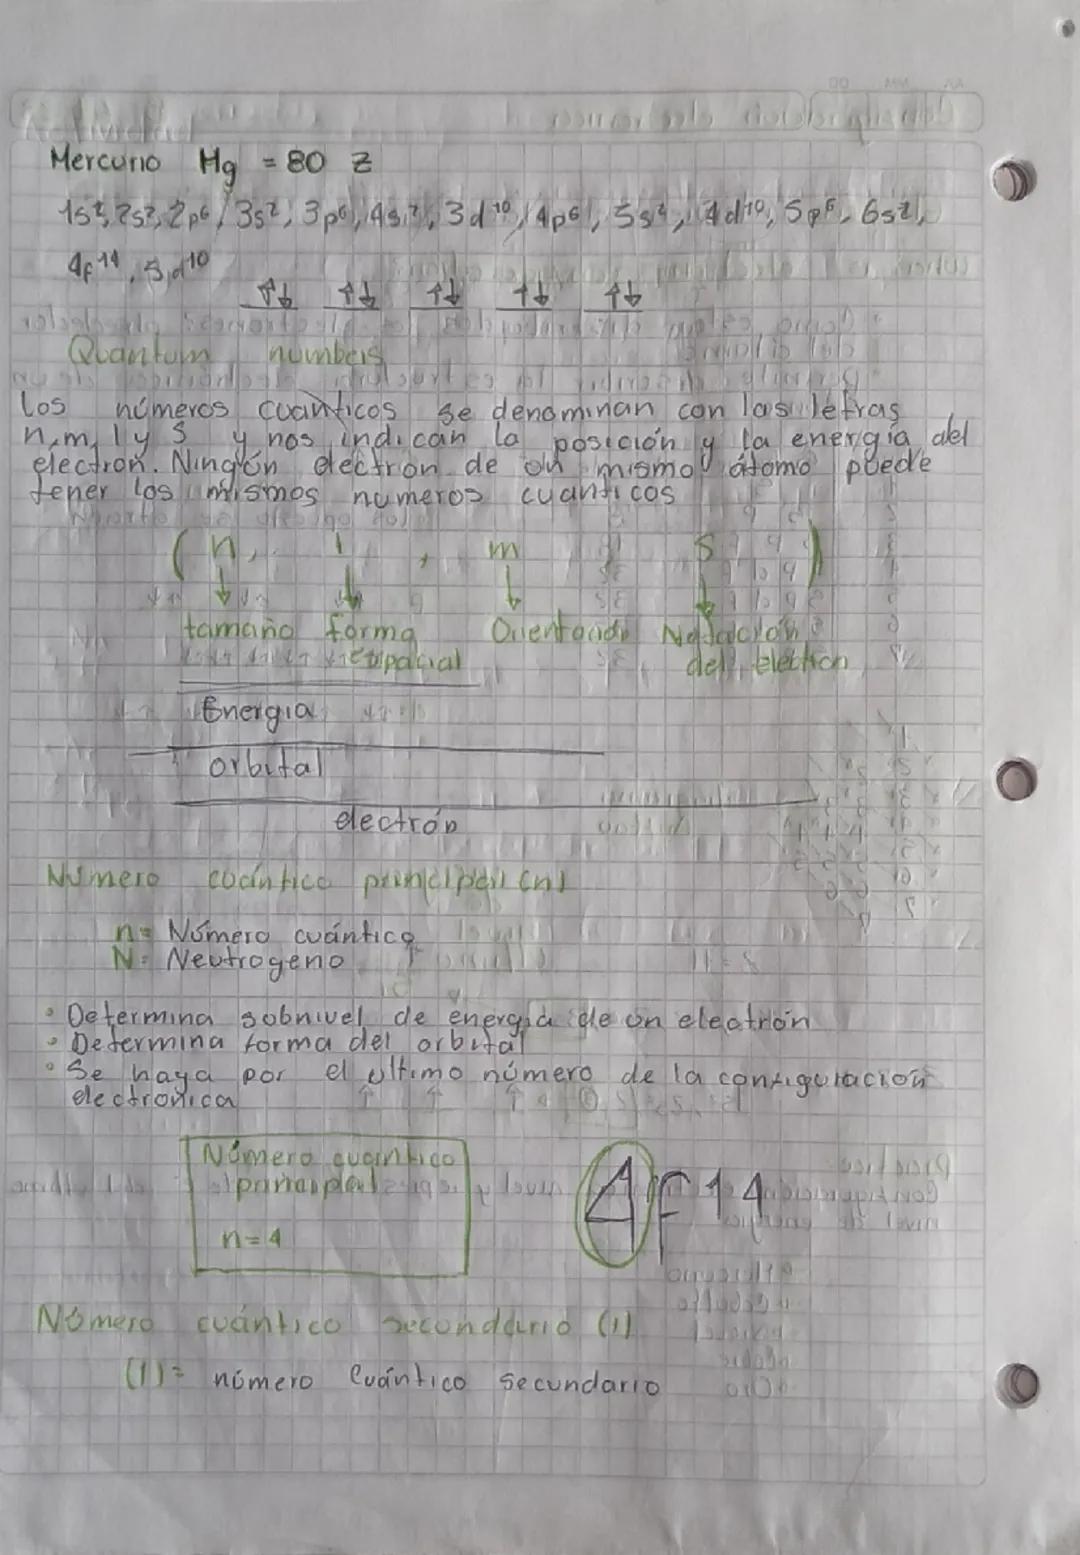 Mercurio Hg = 80 Z
1s², 2s², 2p⁶, 3s², 3p⁶, 4s², 3d¹⁰, 4p⁶, 5s², 4d¹⁰, 5p⁶, 6s²,
4f¹⁴, 5d¹⁰
↑↓ ↑↓ ↑↓ ↑↓ ↑↓
Quantum numbers
Los números cuanticos se denominan con las letras
n, m, l y s y nos indican la posición y la energía del
electron. Ningún electron de un mismo átomo puede
tener los mismos numeros cuanticos
( n, l , m s )
tamaño forma Orientación Notación
espacial del electron
Energia
orbital
electrón
Número cuántico principal (n)
n= Número cuántico
N= Neutrogeno
• Determina subnivel de energía de un electrón
• Determina forma del orbital
• Se haya por el ultimo número de la configuración
electronica
Número cuantico
principal
n=4
4f14
Número cuántico secundario (l)
(l)= número Cuántico Secundario